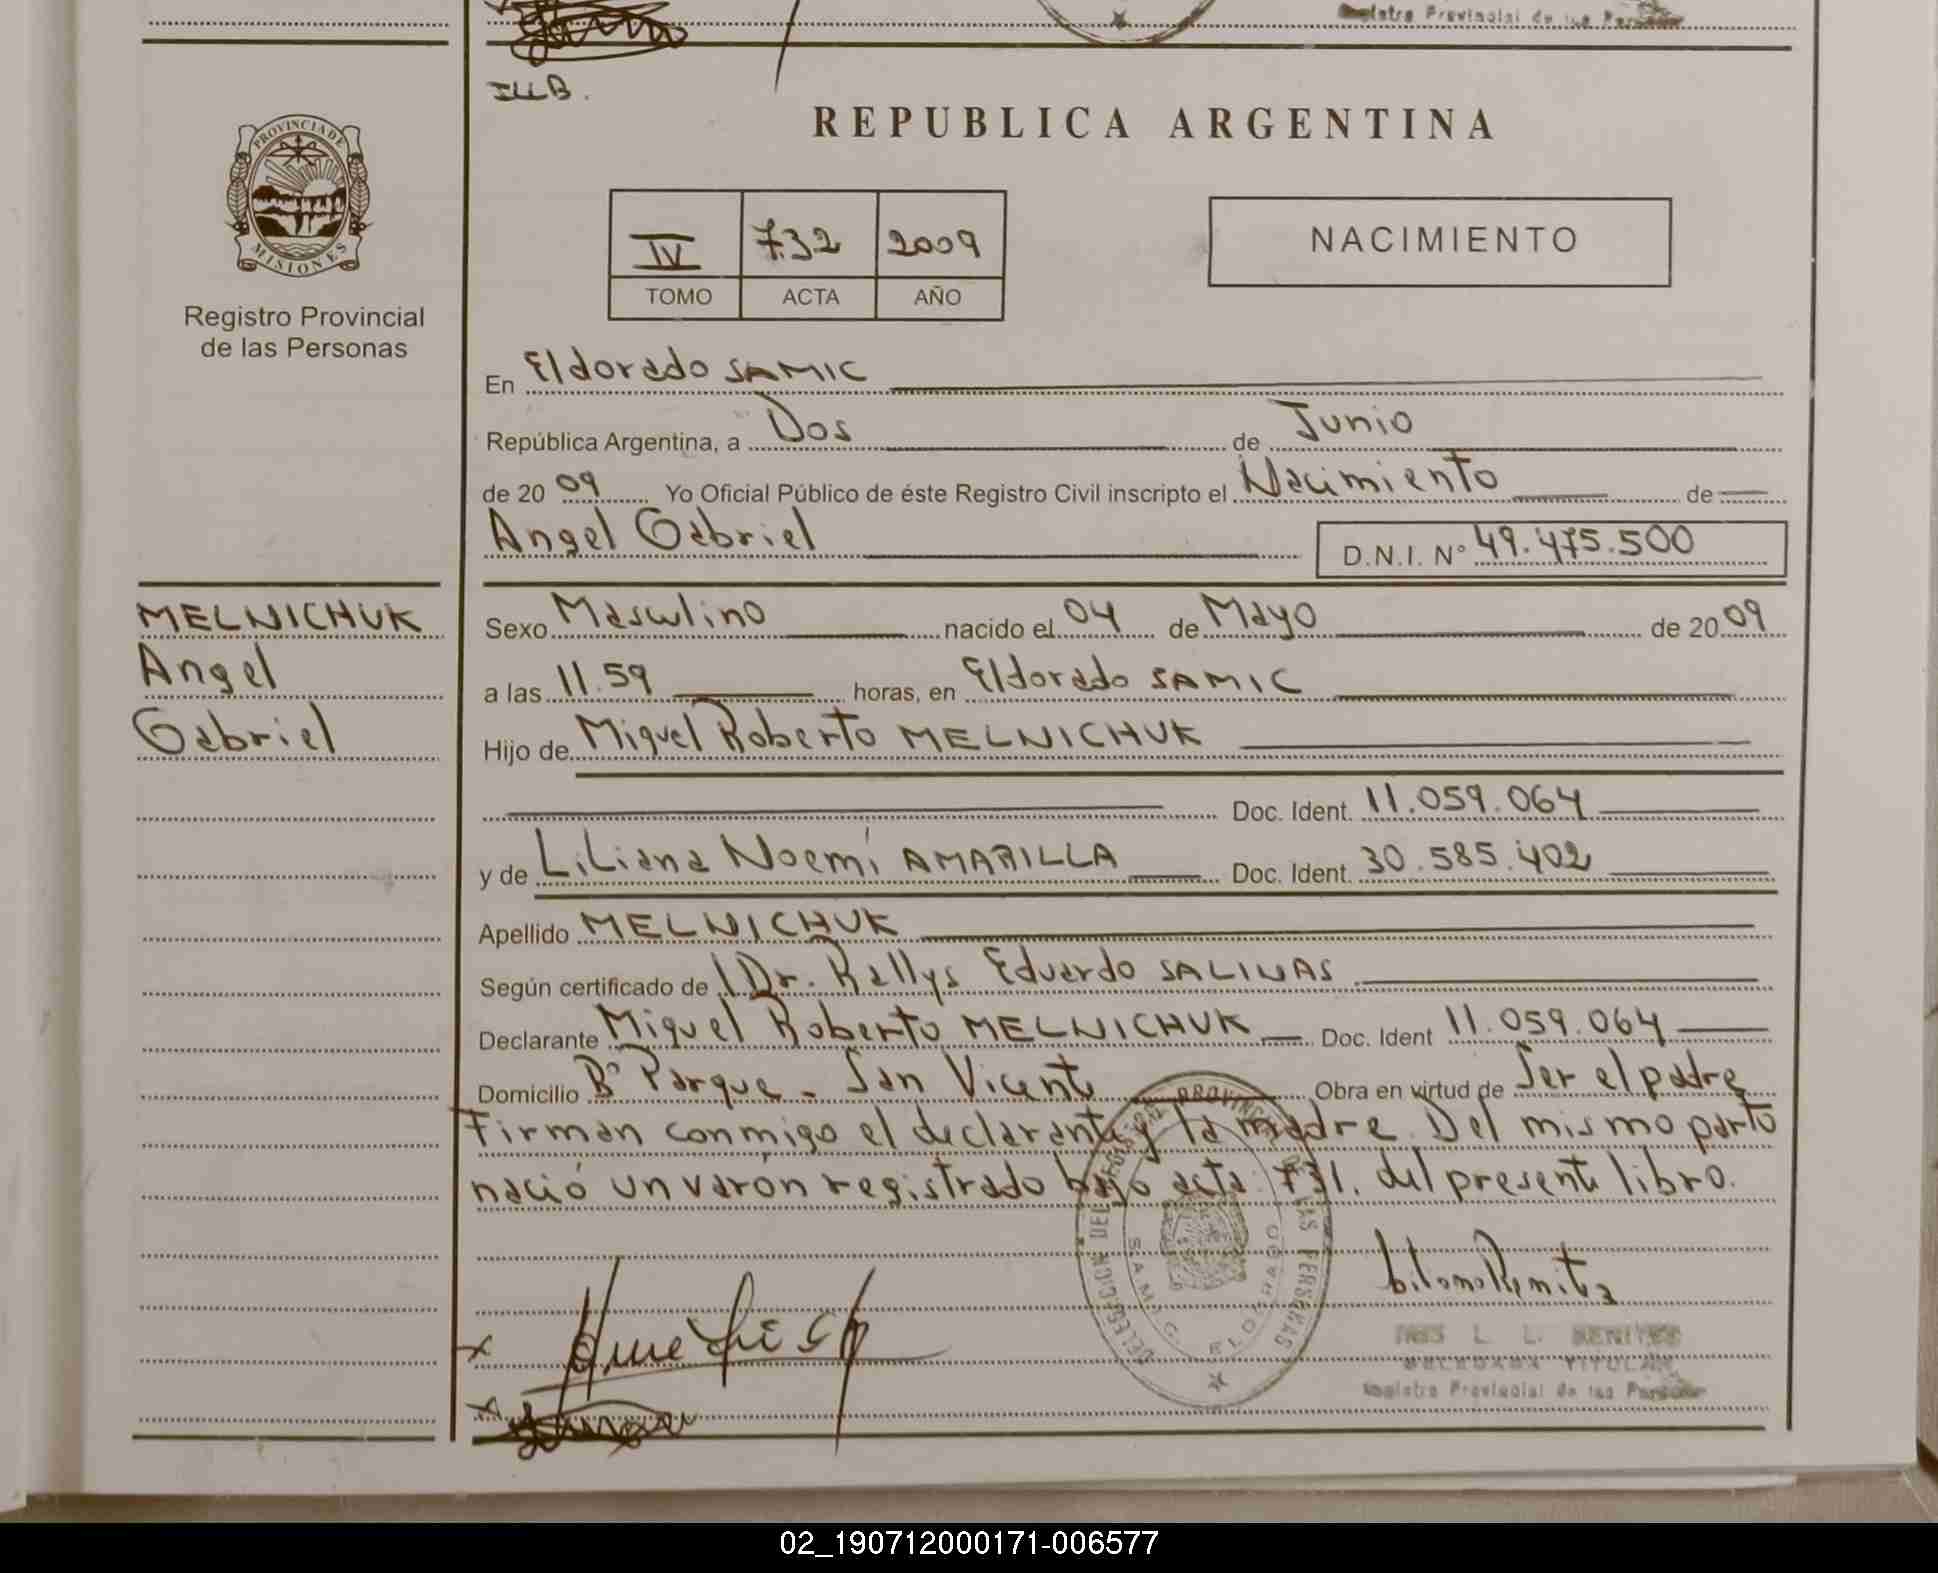 Registro Provincial de las Personas
ILLB.
REPUBLICA ARGENTINA
PROVINCIA DE
MISIONES
Registro Provincial
de las Personas
IV 732 2009
TOMO ACTA AÑO
NACIMIENTO
En Eldorado SAMIC
República Argentina, a Dos de Junio
de 20 09 Yo Oficial Público de éste Registro Civil inscripto el Nacimiento de
Angel Gabriel D.N.I. N° 49.475.500
MELNICHUK
Angel
Gabriel
Sexo Masculino nacido el 04 de Mayo de 20 09
a las 11.59 horas, en Eldorado SAMIC
Hijo de Miguel Roberto MELNICHUK
Doc. Ident. 11.059.064
y de Liliana Noemí AMARILLA Doc. Ident. 30.585.402
Apellido MELNICHUK
Según certificado de Dr. Rallys Eduardo SALINAS
Declarante Miguel Roberto MELNICHUK Doc. Ident 11.059.064
Domicilio B° Parque - San Vicente Obra en virtud de Ser el padre
Firman conmigo el declarante y la madre. Del mismo parto
nació un varón registrado bajo acta: 731. del presente libro.
DELEGACION DEL REGISTRO PROVINCIAL DE LAS PERSONAS
SAMIC ELDORADO
INES L. L. BENITEZ
DELEGADA TITULAR
Registro Provincial de las Personas
02_190712000171-006577